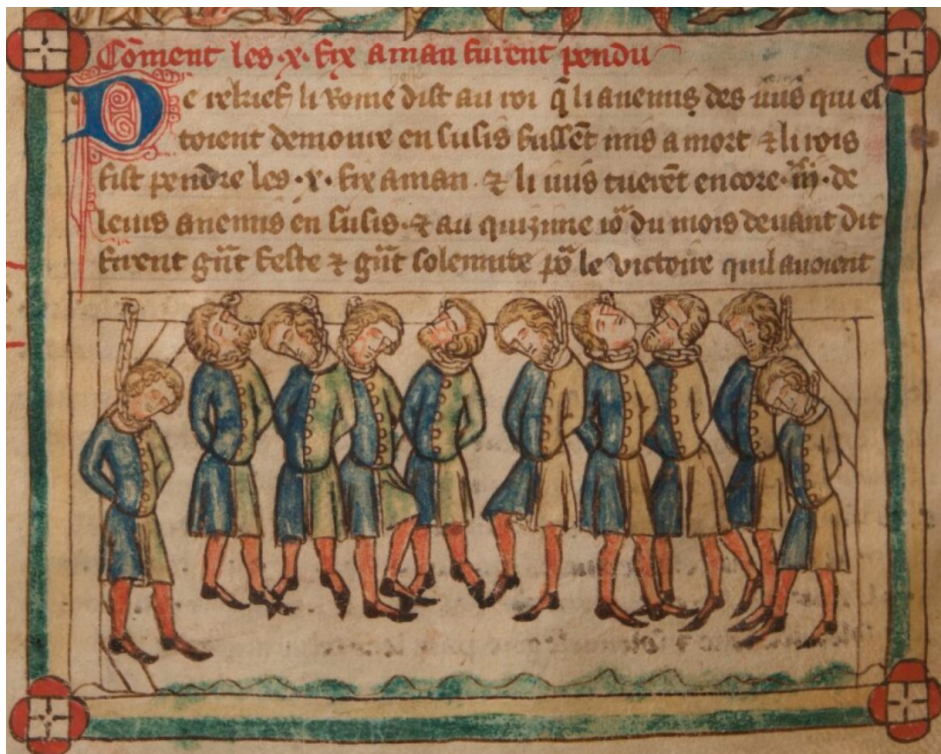 Cōment les .x. fix aman furent pendu
De rekief li roine dist au roi q̄ li anemis des iuis qui es
toient demoure en susis fussēt mis a mort ⁊ li rois
fist pendre les .x. fix aman. ⁊ li iuis tuerēt encore .iijᶜ. de
leurs anemis en susis. ⁊ au quizime iō du mois deuant dit
firent gñt feste ⁊ gñt solennite pō le victoire quil auoient